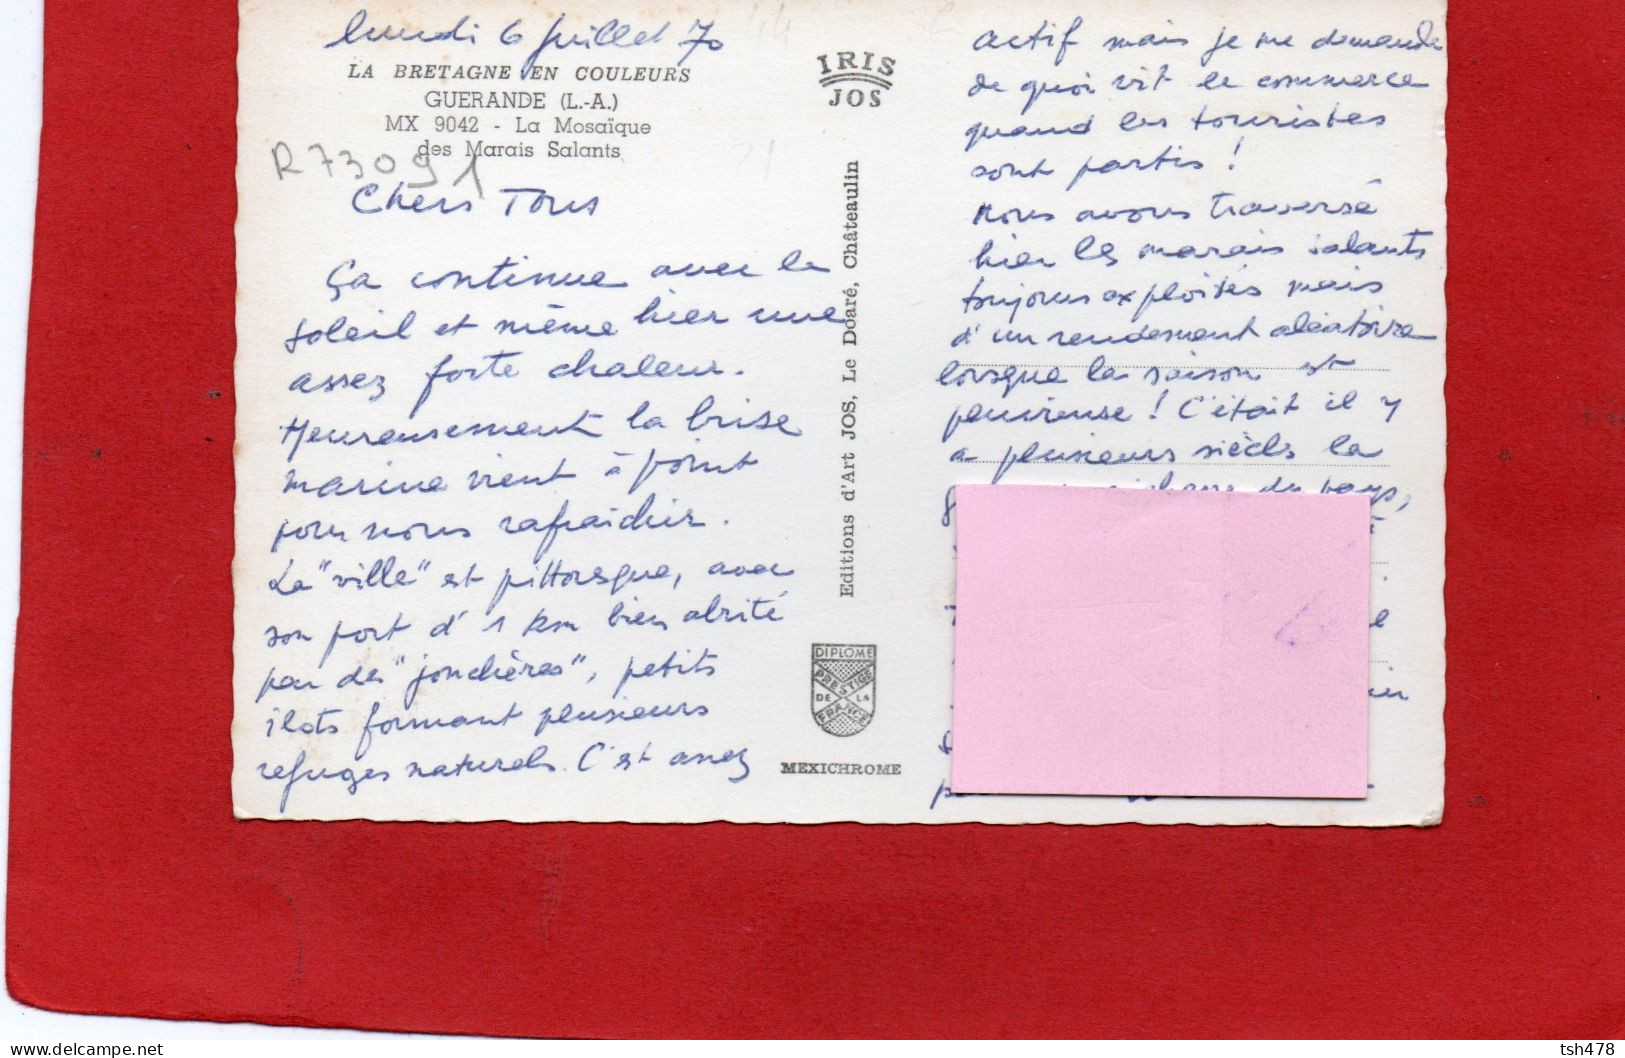 lundi 6 juillet 70
LA BRETAGNE EN COULEURS
GUERANDE (L.-A.)
MX 9042 - La Mosaïque
des Marais Salants
R73091
Chers Tous
Ça continue avec le
soleil et même hier une
assez forte chaleur.
Heureusement la brise
marine vient à point
pour nous rafraichir.
La "ville" est pittoresque, avec
son port d' 1 km bien abrité
par des "jonchères", petits
ilots formant plusieurs
refuges naturels. C'est assez
IRIS
JOS
Editions d'Art JOS, Le Doaré, Châteaulin
DIPLOME
PRESTIGE
DE LA
FRANCE
MEXICHROME
actif mais je me demande
de quoi vit le commerce
quand les touristes
sont partis !
Nous avons traversé
hier les marais salants
toujours exploités mais
d'un rendement aléatoire
lorsque la saison est
pluvieuse ! C'était il y
a plusieurs siècles la
du pays,
delcampe.net
tsh478